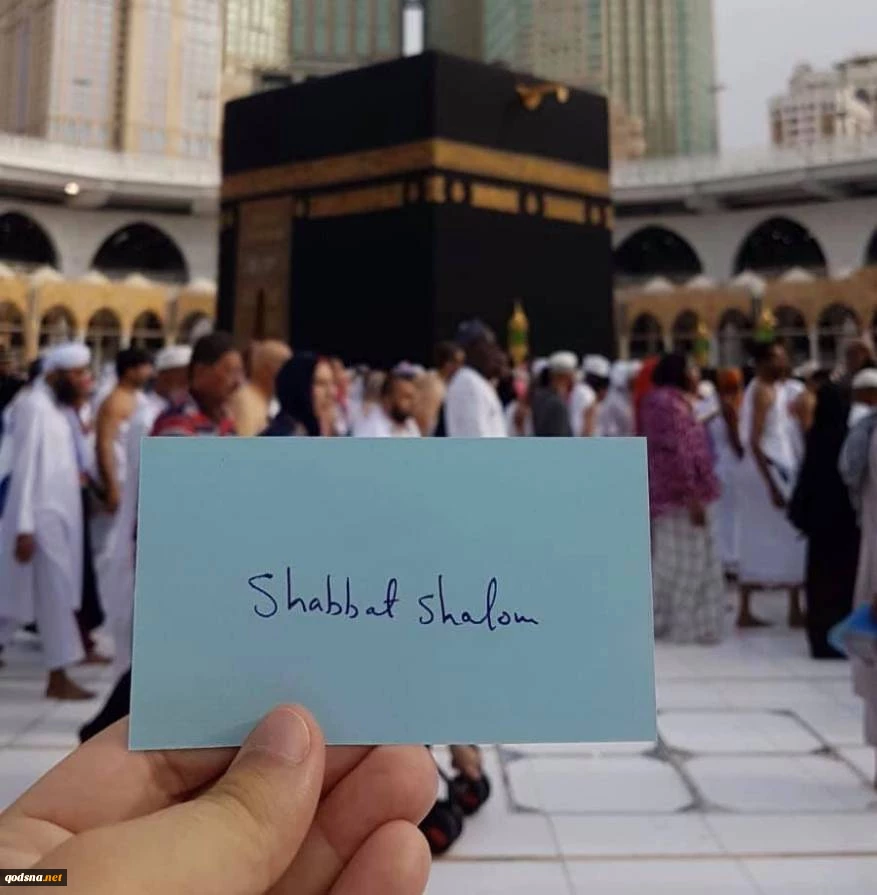 Shabbat Shalom
qodsna.net